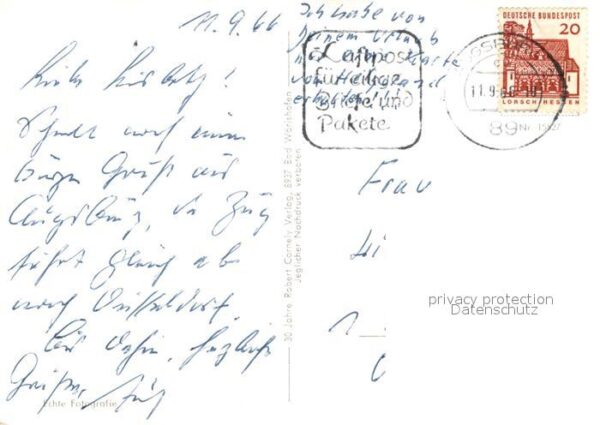 11.9.66
Liebe
Schnell noch einen
kurzen Gruß aus
Augsburg, der Zug
fährt gleich ab
nach Düsseldorf.
Bis dahin, herzliche
Grüße,
Echte Fotografie
30 Jahre Robert Cornely Verlag, 8937 Bad Wörishofen
Jeglicher Nachdruck verboten
Ich habe von
Deinem Urlaub
Karte
von
erhalten!
Luftpost
für eilige
Briefe und
Pakete
DEUTSCHE BUNDESPOST
20
LORSCH/HESSEN
11.9.66
89
Nr. 1527
Frau
privacy protection
Datenschutz